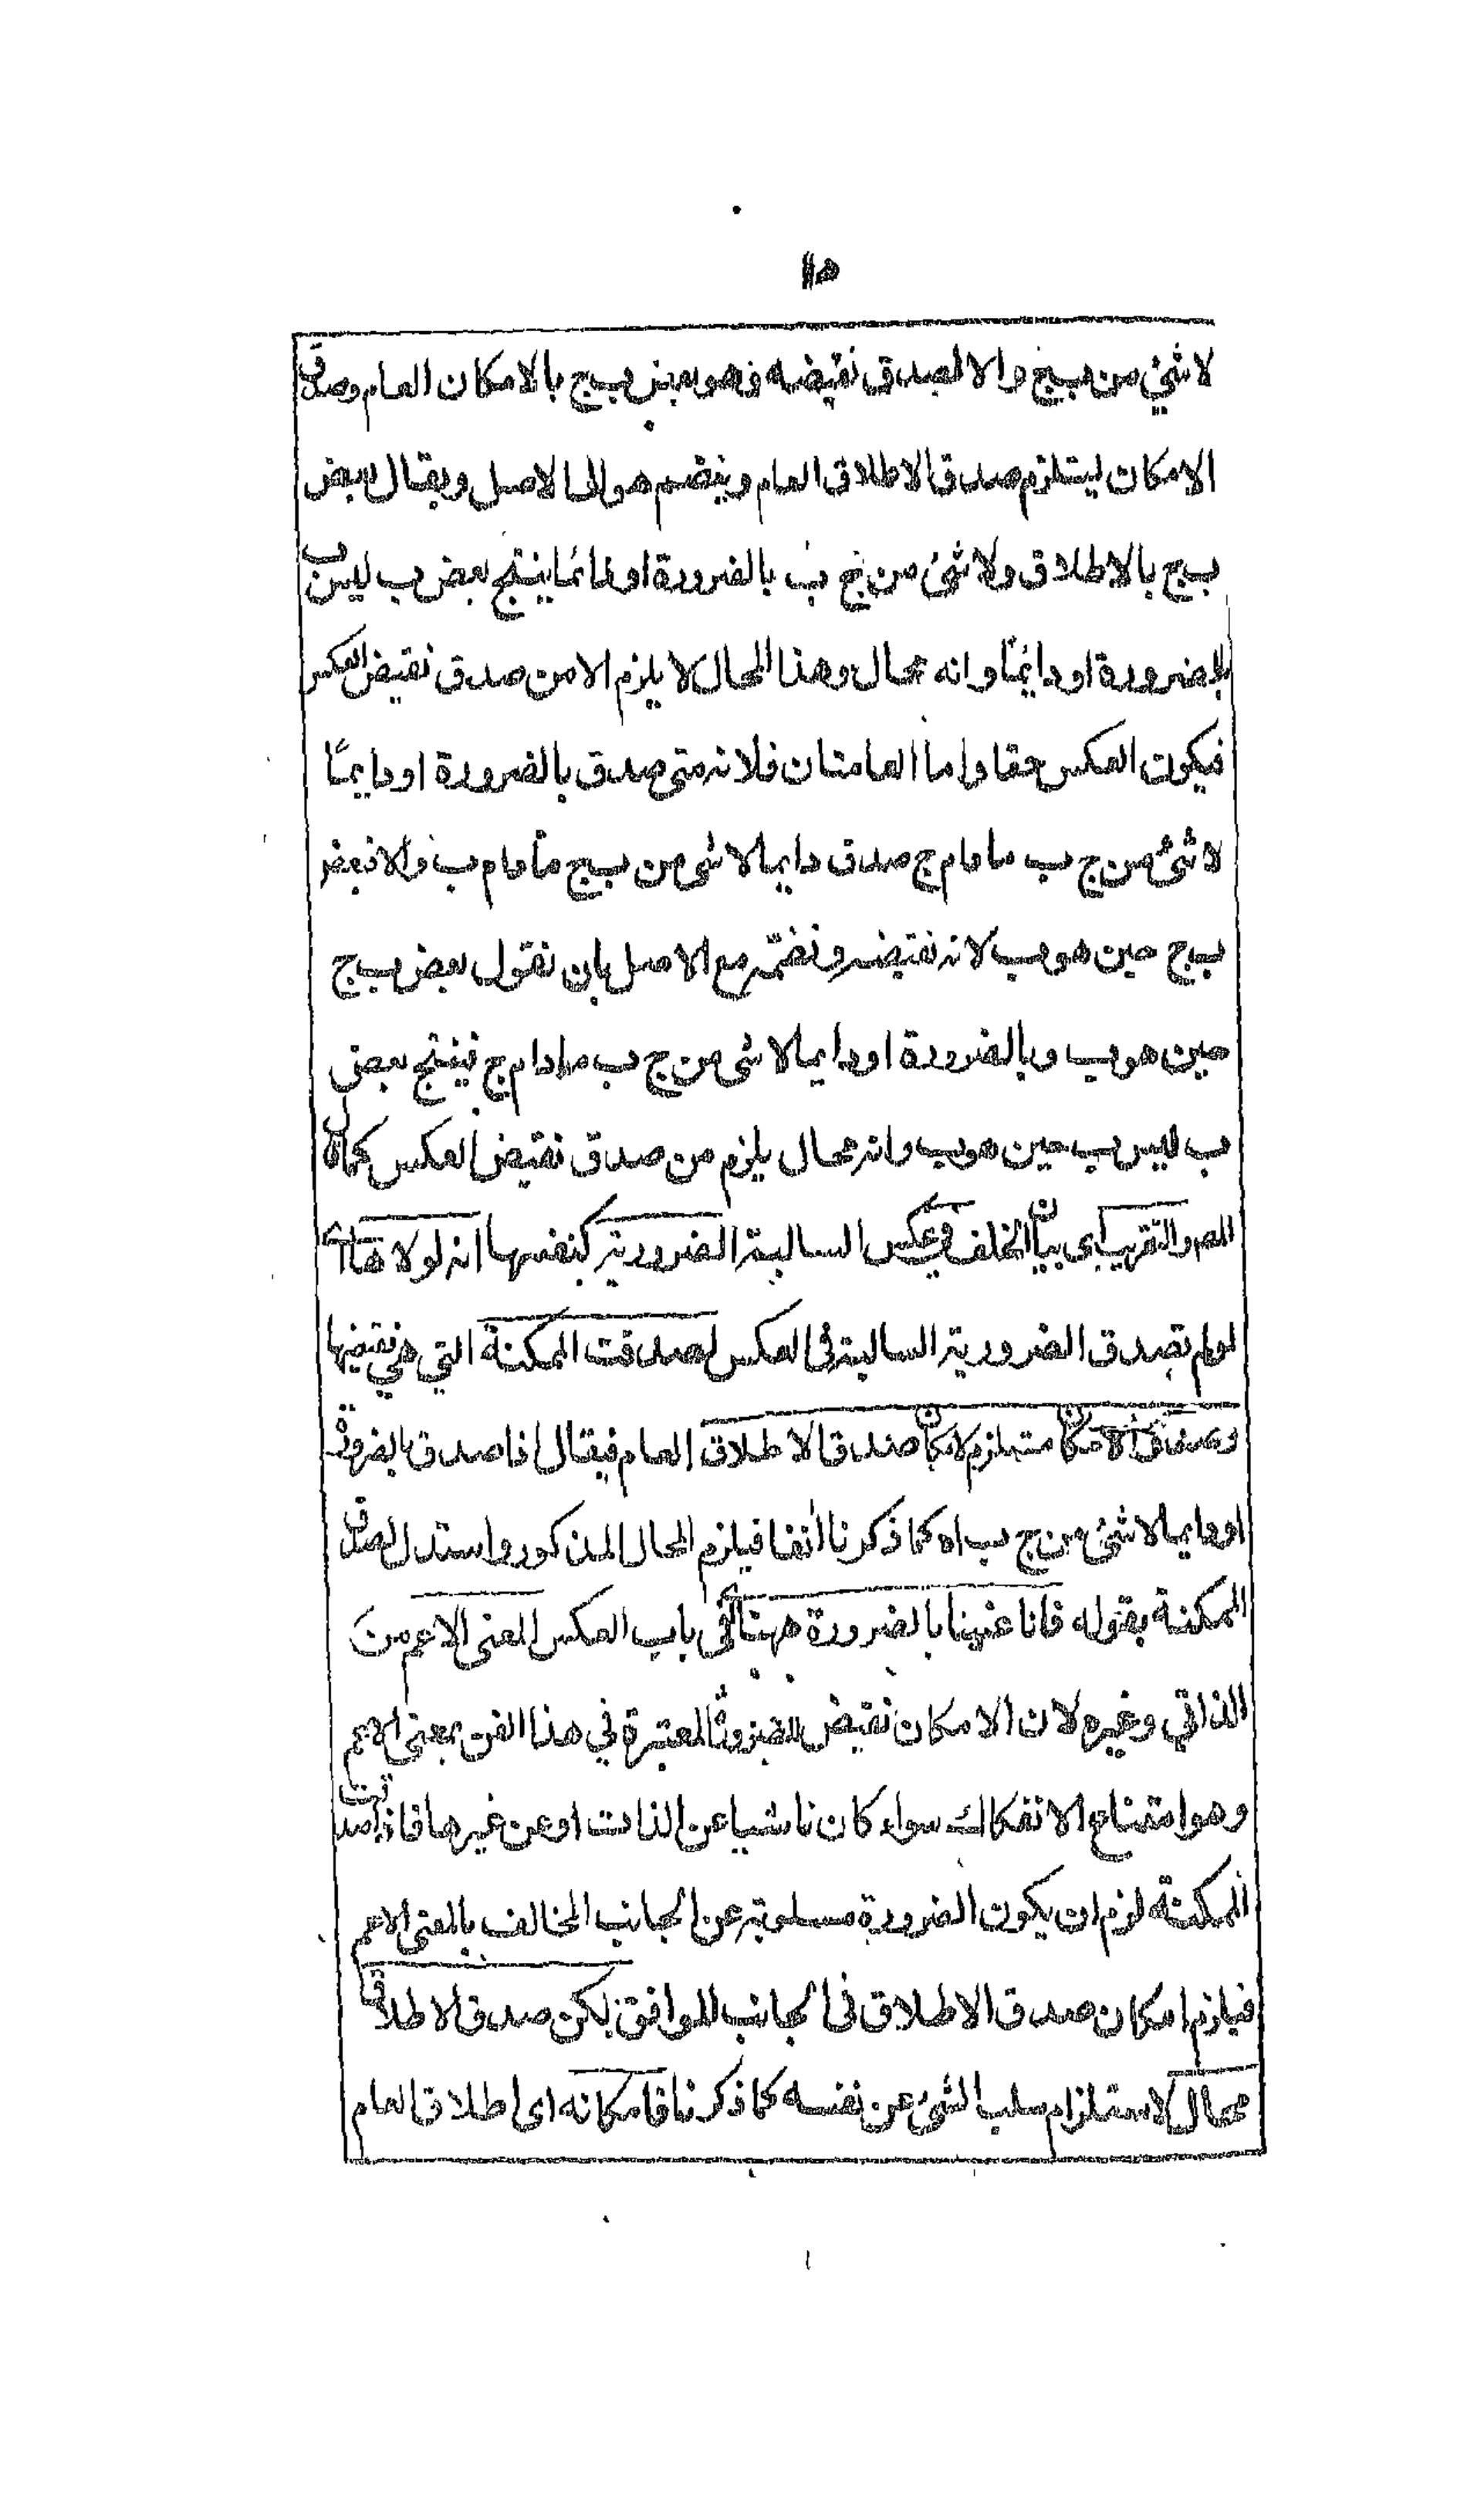 ١١٥
لا شئ من ب ج والا لصدق نقيضه وهو بعض ب ج بالامكان العام وصدق
الامكان ليستلزم صدق الاطلاق العام وينضم هو الى الاصل ويقال بعض
ب ج بالاطلاق ولا شئ من ج ب بالضرورة او دائما ينتج بعض ب ليس ب
بالضرورة او دايمًا وانه محال وهذا المحال لا يلزم الا من صدق نقيض العكس
فيكون العكس حقا واما العامتان فلانه متى صدق بالضرورة او دايمًا
لا شئ من ج ب مادام ج صدق دايما لا شئ من ب ج مادام ب والا فبعض
ب ج حين هو ب لانه نقيضه ونضمّه مع الاصل بان نقول بعض ب ج
حين هو ب وبالضرورة او دايما لا شئ من ج ب مادام ج فينتج بعض
ب ليس ب حين هو ب وانه محال يلزم من صدق نقيض العكس كما قال
المصر والتقريب اى بيان الخلف فى عكس السالبة الضرورية كنفسها انه لولاها اى
لو لم تصدق الضرورية السالبة فى العكس لصدقت الممكنة التي هي نقيضها
وصدق الامكان مستلزم لامكان صدق الاطلاق العام فيقال اذا صدق بالضرورة
او دايما لا شئ من ج ب اه كما ذكرنا انفا فيلزم المحال المذكور واستدل لصدق
الممكنة بقوله فانا عنينا بالضرورة ههنا اى فى باب العكس المعنى الاعم من
الذاتي وغيره لان الامكان نقيض للضرورة المعتبرة في هذا الفن بمعنى الاعم
وهو امتناع الانفكاك سواء كان ناشيا عن الذات او عن غيرها فاذا صدقت
الممكنة لزم ان يكون الضرورة مسلوبة عن الجانب المخالف بالمعنى الاعم
فيلزم امكان صدق الاطلاق فى الجانب الموافق لكن صدق الاطلاق
محال لاستلزام سلب الشئ عن نفسه كما ذكرنا فامكانه اى اطلاق العام